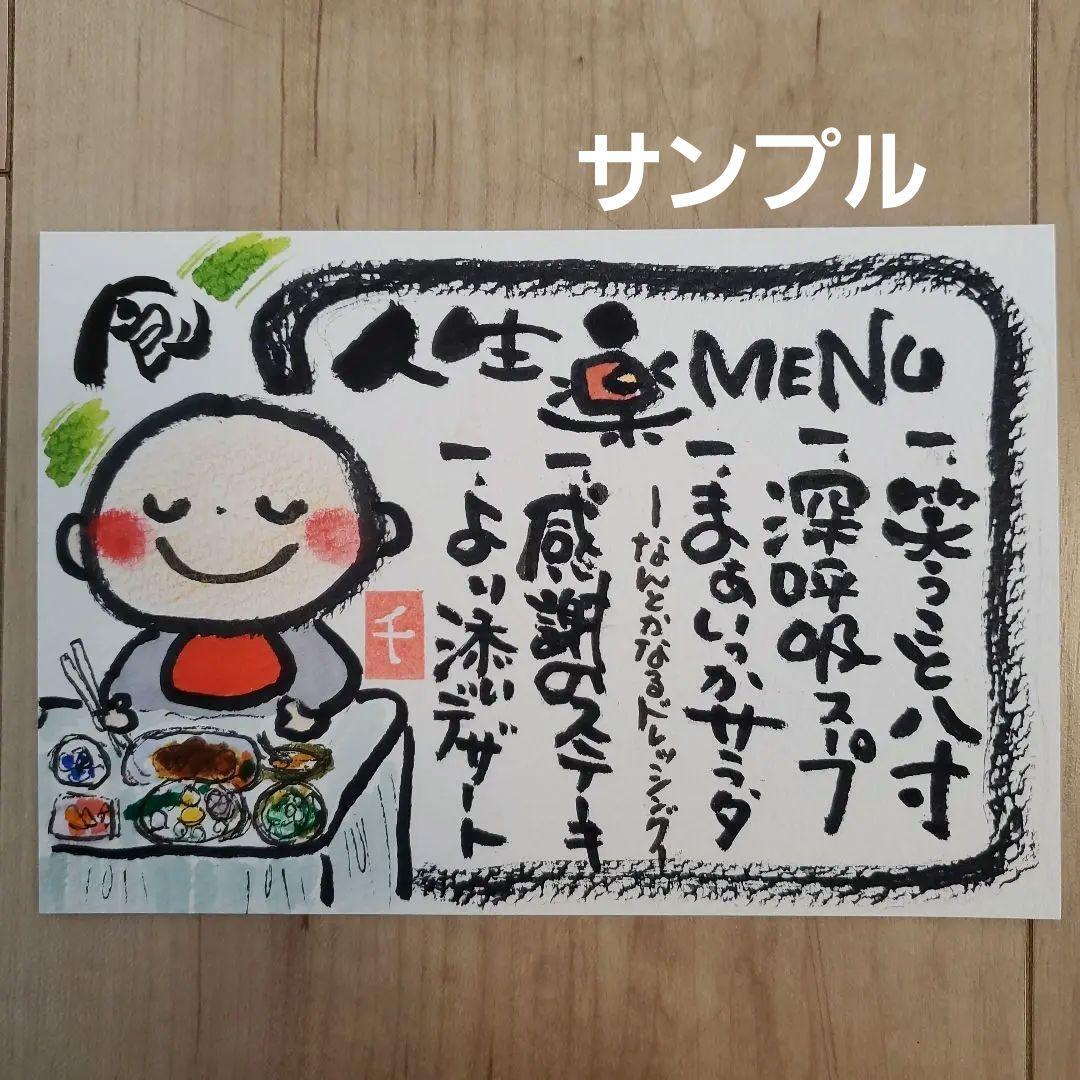 サンプル
人生楽MENU
一、笑うこと八寸
一、深呼吸スープ
一、まぁいっかサラダ
ーなんとかなるドレッシングー
一、感謝のステーキ
一、より添いデザート
千